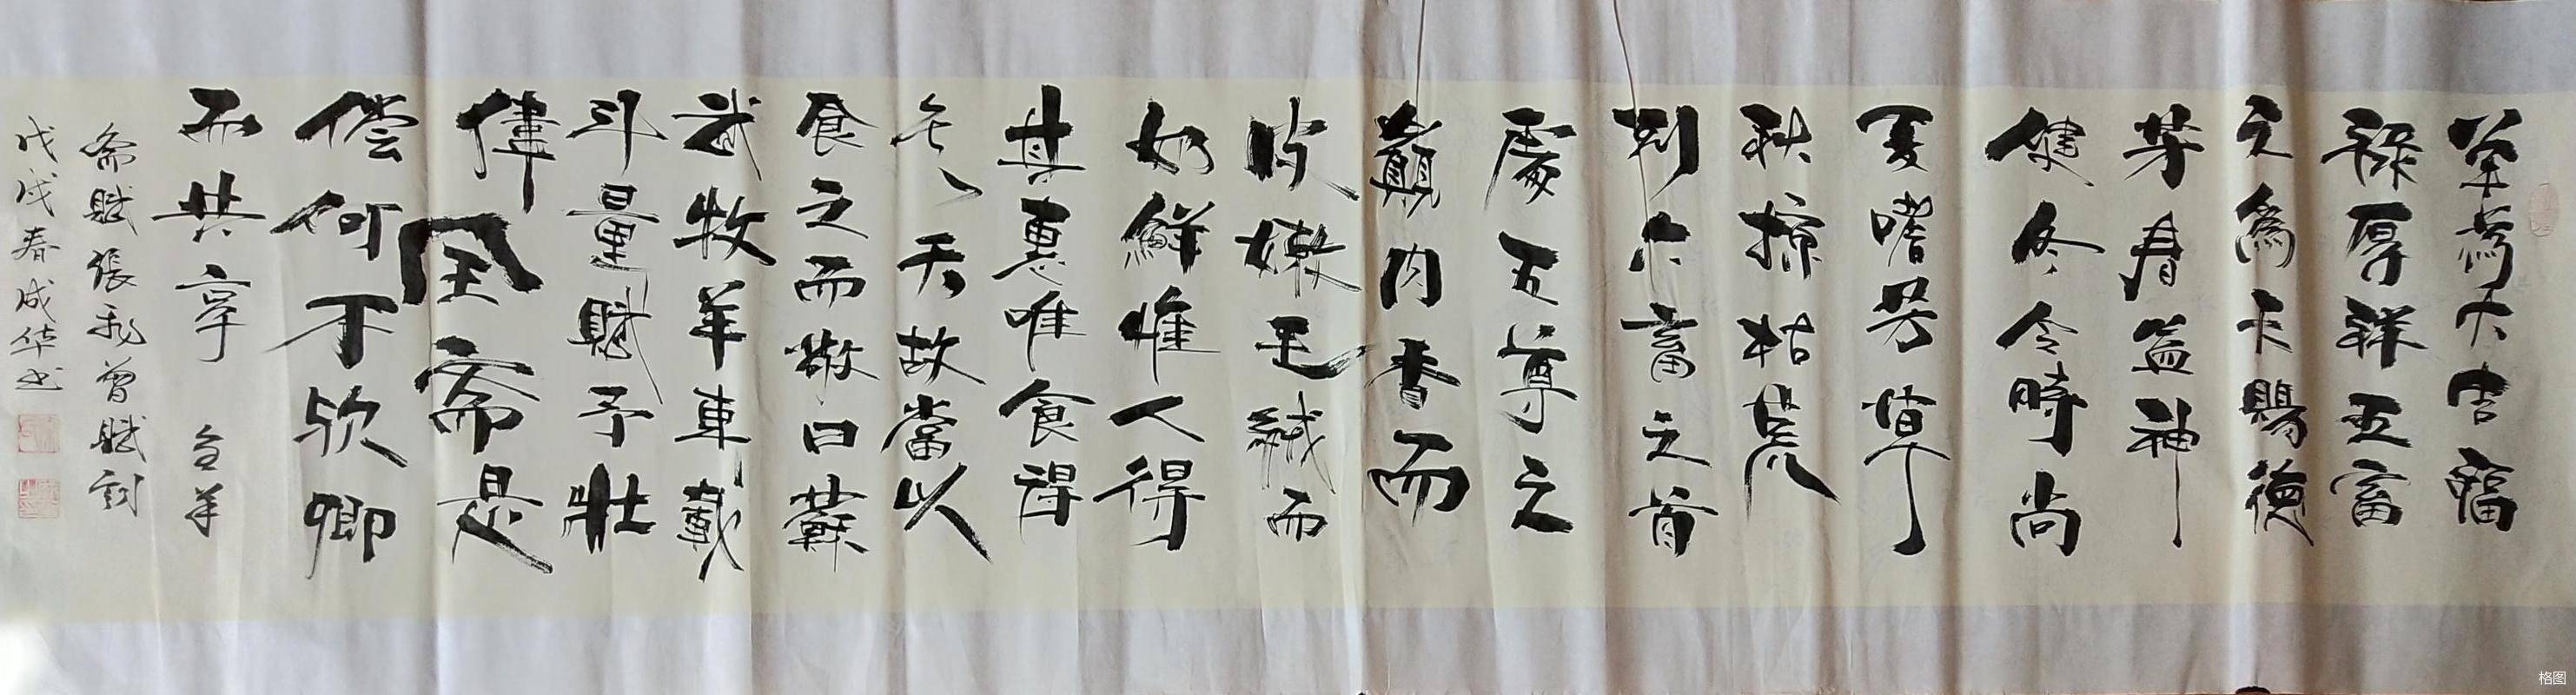 羊焉大吉福
祿厚祥五畜
之為天賜德
芳春益神
健冬令時尚
夏嗜芳草
秋掠枯荒
列六畜之首
處五尊之
巔內香而
皮嫩毛絨而
如鮮惟人得
其惠唯食得
天故當以
食之而敬曰蘇
武牧羊車載
斗量賦予壯
偉全斋是
偿何不欣卿
而共享 全羊
斋賦張飛曾賦詞
戊戌春成华书
格图